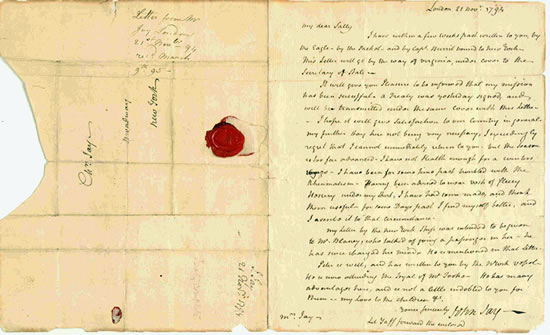 Letter from Mr
Jay London
21st Novr 94
recd March
9th 95
Mrs Jay
Broadway
New York
London 21 Novr. 1794
My dear Sally
I have within a few weeks past written to you by
the Eagle - by the and by Capt. bound to New York -
This Letter will go by the way of Virginia, under cover to the
Secretary of State -
It will give you Pleasure to be informed that my mission
has been successful - a Treaty was yesterday signed, and
will be transmitted under the same cover with this Letter -
I hope it will give satisfaction to our Country in general -
my further stay here not being very necessary, I exceedingly
regret that I cannot immediately return to you - but the season
is too far advanced - I have not Health enough for a winter
voyage - I have been for some time past troubled with the
Rheumatism - Having been advised to wear vests of fleecy
Hosiery under my shirt, I have had some made, and think
them useful - for some Days past I find myself better, and
I ascribe it to that circumstance -
my letter by the new York Ship was intended to be given
to Mr. Blaney, who talked of going a passenger in her - he
has since changed his mind - He is mentioned in that Letter.
Peter is well, and has written to you by the vessel -
He is now attending the Tryal of Mr. Tooke - He has many
advantages here, and is not a little indebted to you for
them - my Love to the children &c. -
yours sincerely John Jay -
Mrs. Jay -
Let forward the enclosed